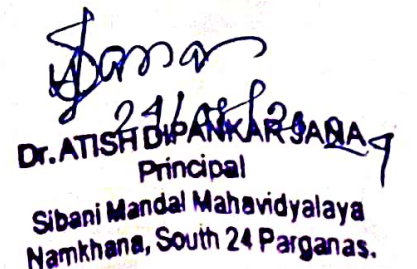 Dr. ATISH DIPANKAR JANA
Principal
Sibani Mandal Mahavidyalaya
Namkhana, South 24 Parganas.